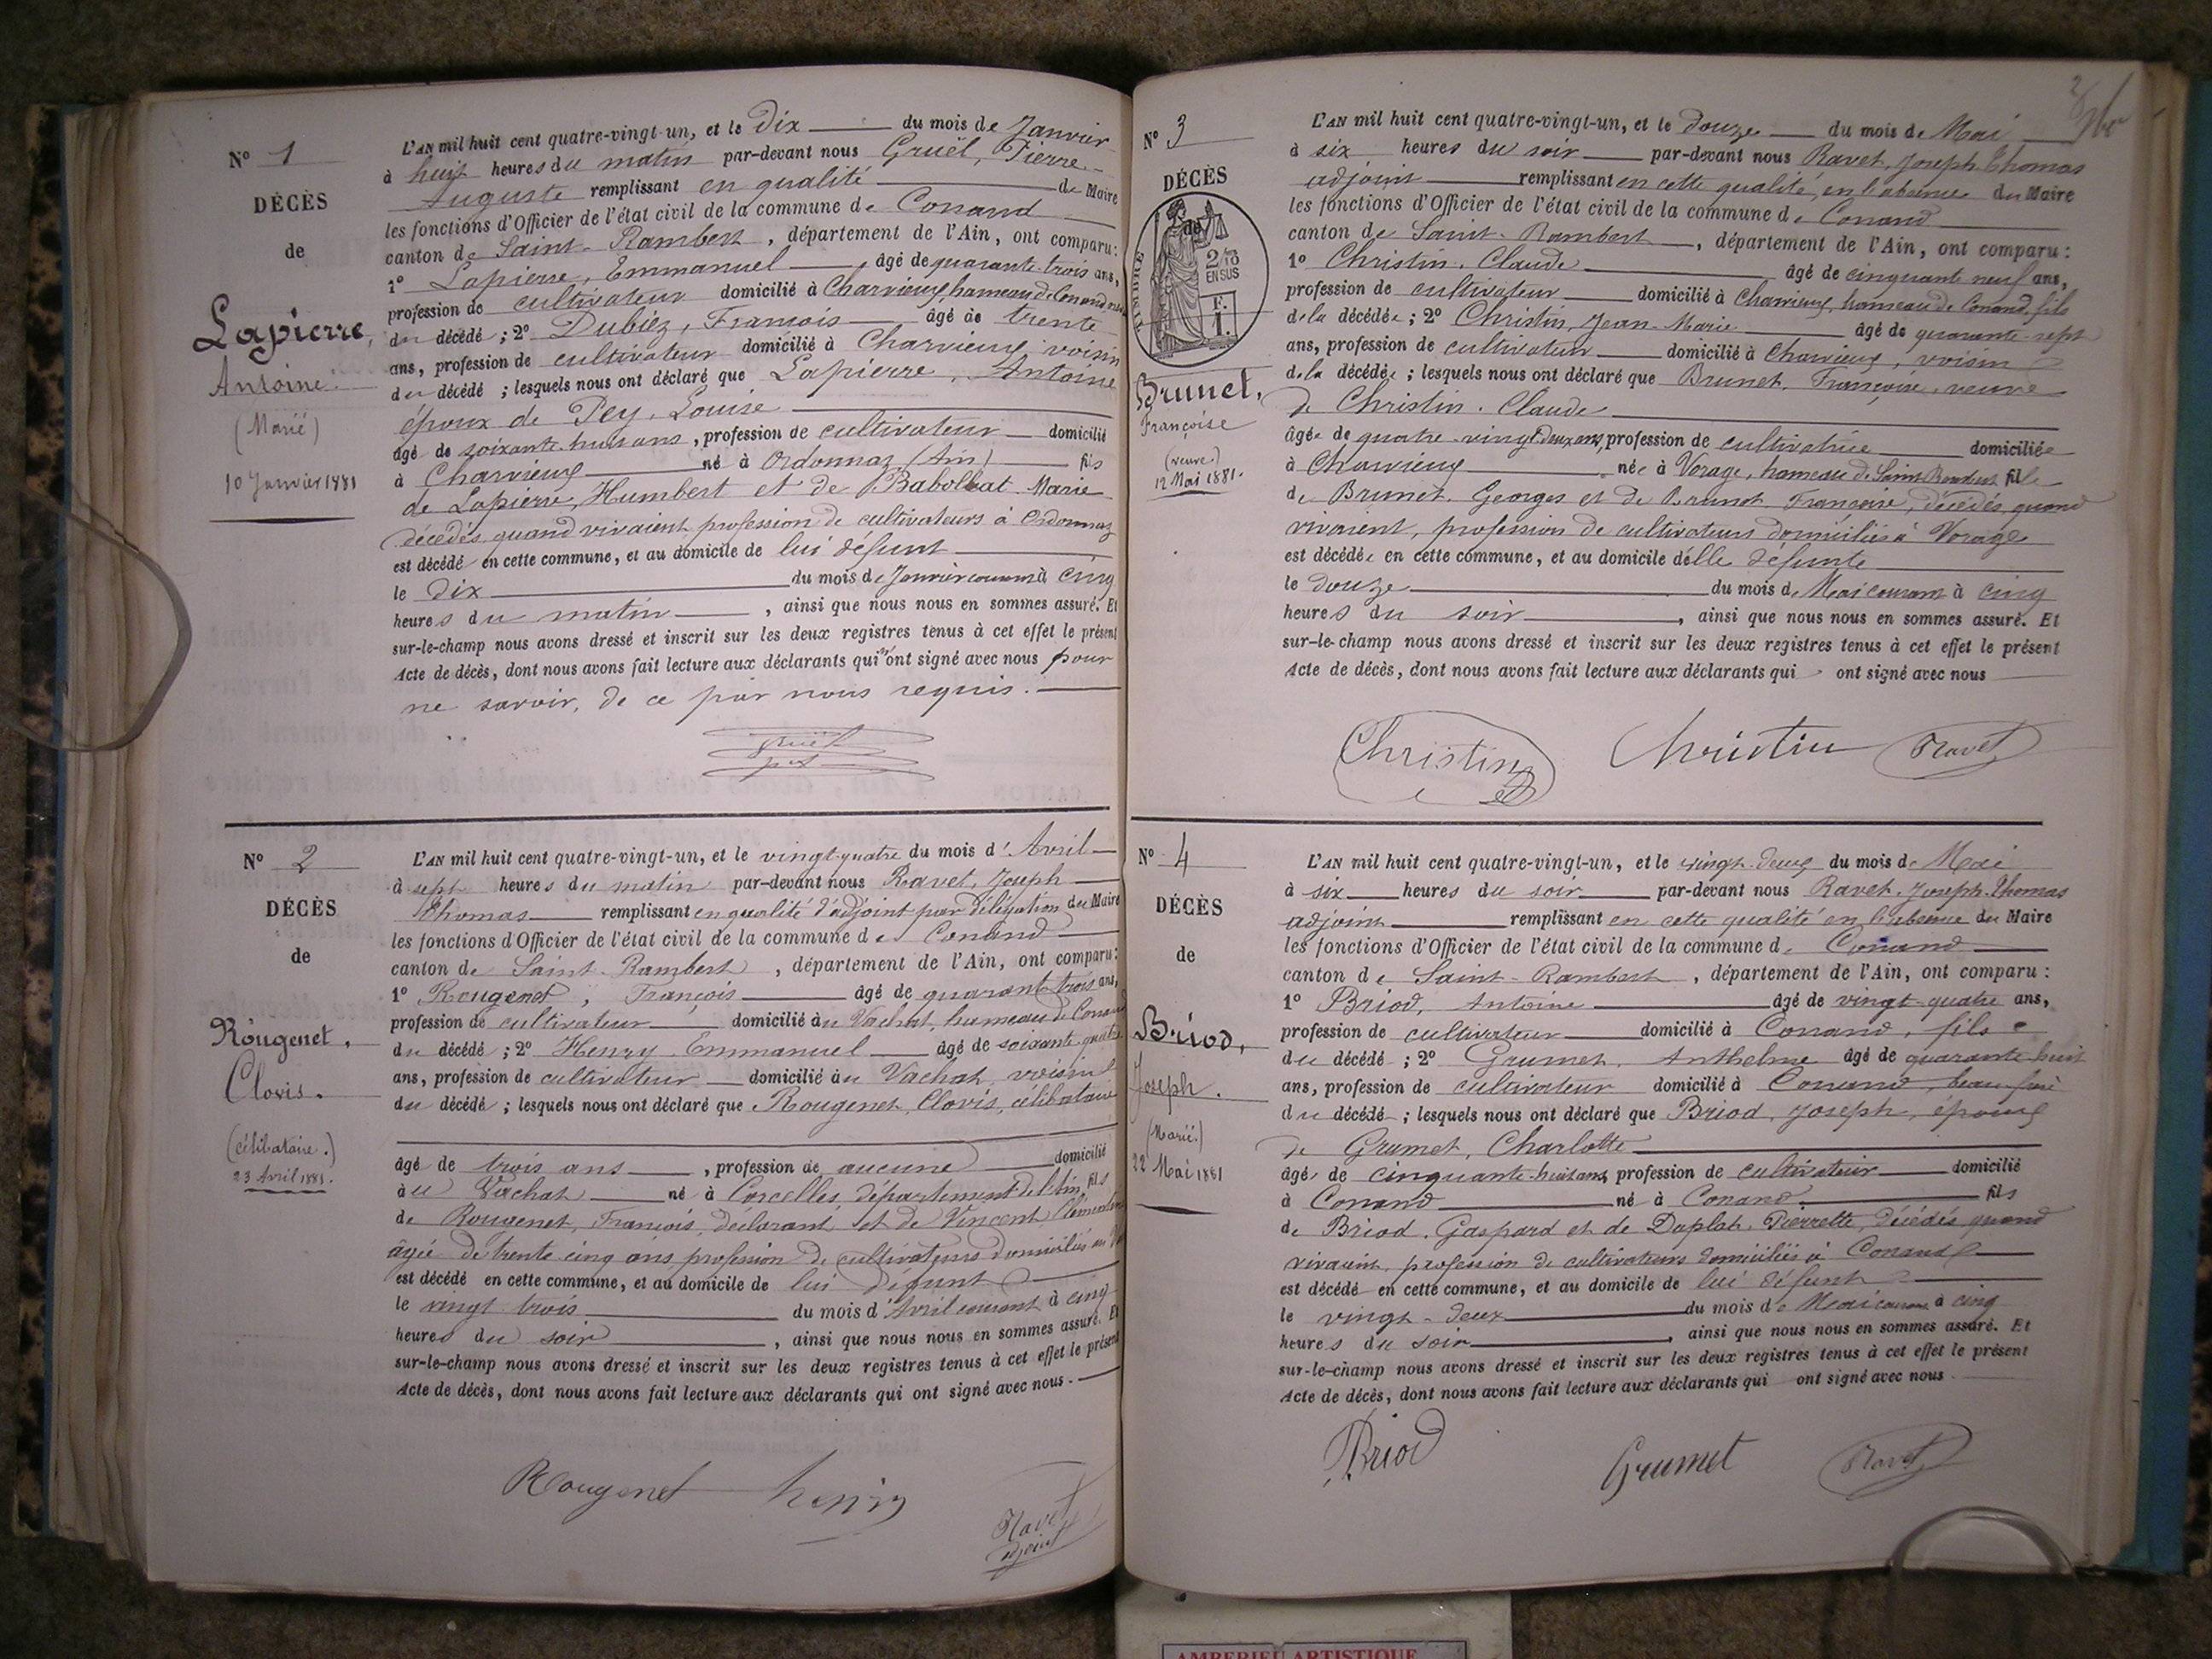 N° 1
DÉCÈS
de
Lapierre,
Antoine.
(Marié)
10 Janvier 1881
L'AN mil huit cent quatre-vingt-un, et le Dix du mois de Janvier
à huit heures du matin par-devant nous Gruël, Pierre
Auguste remplissant en qualité de Maire
les fonctions d'Officier de l'état civil de la commune de Conand
canton de Saint-Rambert, département de l'Ain, ont comparu:
1° Lapierre, Emmanuel âgé de quarante-trois ans,
profession de cultivateur domicilié à Charvieux, hameau de Conand
du décédé; 2° Dubiez, François âgé de trente
ans, profession de cultivateur domicilié à Charvieux voisin
du décédé; lesquels nous ont déclaré que Lapierre, Antoine
époux de Pey, Louise
âgé de soixante huit ans, profession de cultivateur domicilié
à Charvieux né à Ordonnaz (Ain) fils
de Lapierre, Humbert et de Babollat Marie
décédés quand vivaient profession de cultivateurs à Ordonnaz
est décédé en cette commune, et au domicile de lui défunt
le dix du mois de Janvier courant à cinq
heures du matin, ainsi que nous nous en sommes assuré. Et
sur-le-champ nous avons dressé et inscrit sur les deux registres tenus à cet effet le présent
Acte de décès, dont nous avons fait lecture aux déclarants qui n'ont signé avec nous pour
ne savoir, de ce par nous requis.
Gruël
N° 2
DÉCÈS
de
Rougenet,
Clovis.
(célibataire.)
23 Avril 1881.
L'AN mil huit cent quatre-vingt-un, et le vingt-quatre du mois d'Avril
à sept heures du matin par-devant nous Ravet, Joseph
Thomas remplissant en qualité d'adjoint par délégation du Maire
les fonctions d'Officier de l'état civil de la commune de Conand
canton de Saint-Rambert, département de l'Ain, ont comparu:
1° Rougenet, François âgé de quarante trois ans,
profession de cultivateur domicilié au Vachat, hameau de Conand
du décédé; 2° Henry Emmanuel âgé de soixante quatre
ans, profession de cultivateur domicilié au Vachat voisin
du décédé; lesquels nous ont déclaré que Rougenet, Clovis, célibataire
âgé de trois ans, profession de aucune domicilié
au Vachat né à Corcelles, département de l'Ain, fils
de Rougenet, François, déclarant et de Vincent,
âgée de trente cinq ans profession de cultivateurs domiciliés au
est décédé en cette commune, et au domicile de lui défunt
le vingt trois du mois d'Avril courant à cinq
heures du soir, ainsi que nous nous en sommes assuré. Et
sur-le-champ nous avons dressé et inscrit sur les deux registres tenus à cet effet le présent
Acte de décès, dont nous avons fait lecture aux déclarants qui ont signé avec nous.
Rougenet henry Ravet
adjoint
N° 3
DÉCÈS
de
TIMBRE
2/10
EN SUS
F.
1.
Brunet,
Françoise
(veuve.)
12 Mai 1881.
L'AN mil huit cent quatre-vingt-un, et le douze du mois de Mai
à six heures du soir par-devant nous Ravet, Joseph Thomas
adjoint remplissant en cette qualité, en l'absence du Maire
les fonctions d'Officier de l'état civil de la commune de Conand
canton de Saint-Rambert, département de l'Ain, ont comparu:
1° Christin, Claude âgé de cinquante neuf ans,
profession de cultivateur domicilié à Charvieux, hameau de Conand, fils
de la décédée; 2° Christin, Jean-Marie âgé de quarante-sept
ans, profession de cultivateur domicilié à Charvieux, voisin
de la décédée; lesquels nous ont déclaré que Brunet, Françoise, veuve
de Christin, Claude
âgée de quatre-vingt deux ans, profession de cultivatrice domiciliée
à Charvieux née à Vorage, hameau de Saint Rambert fille
de Brunet, Georges et de Brunet, Françoise, décédés, quand
vivaient, profession de cultivateurs domiciliés à Vorage
est décédée en cette commune, et au domicile d'elle défunte
le douze du mois de Mai courant à cinq
heures du soir, ainsi que nous nous en sommes assuré. Et
sur-le-champ nous avons dressé et inscrit sur les deux registres tenus à cet effet le présent
Acte de décès, dont nous avons fait lecture aux déclarants qui ont signé avec nous
Christin Christin Ravet
N° 4
DÉCÈS
de
Briod,
Joseph.
(Marié.)
22 Mai 1881
L'AN mil huit cent quatre-vingt-un, et le vingt-deux du mois de Mai
à six heures du soir par-devant nous Ravet, Joseph Thomas
adjoint remplissant en cette qualité en l'absence du Maire
les fonctions d'Officier de l'état civil de la commune de Conand
canton de Saint-Rambert, département de l'Ain, ont comparu:
1° Briod, Antoine âgé de vingt-quatre ans,
profession de cultivateur domicilié à Conand, fils
du décédé; 2° Grumet, Anthelme âgé de quarante-huit
ans, profession de cultivateur domicilié à Conand, beau-frère
du décédé; lesquels nous ont déclaré que Briod, Joseph, époux
de Grumet, Charlotte
âgé de cinquante-huit ans, profession de cultivateur domicilié
à Conand né à Conand fils
de Briod, Gaspard et de Duplat, Pierrette, décédés quand
vivaient, profession de cultivateurs domiciliés à Conand
est décédé en cette commune, et au domicile de lui défunt
le vingt-deux du mois de Mai courant à cinq
heures du soir, ainsi que nous nous en sommes assuré. Et
sur-le-champ nous avons dressé et inscrit sur les deux registres tenus à cet effet le présent
Acte de décès, dont nous avons fait lecture aux déclarants qui ont signé avec nous
Briod Grumet Ravet
AMBERIEU ARTISTIQUE